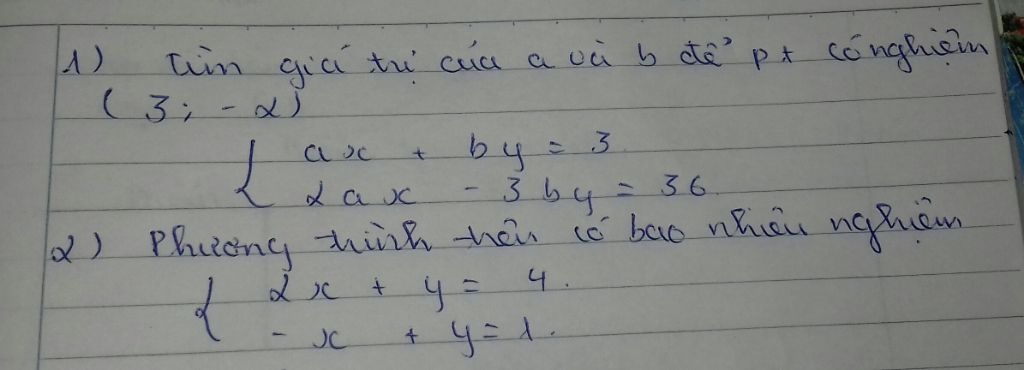 1) Tìm giá trị của a và b để pt có nghiệm
( 3 ; - 2 )
{ ax + by = 3
2ax - 3by = 36
2) Phương trình trên có bao nhiêu nghiệm
{ 2x + y = 4.
- x + y = 1.